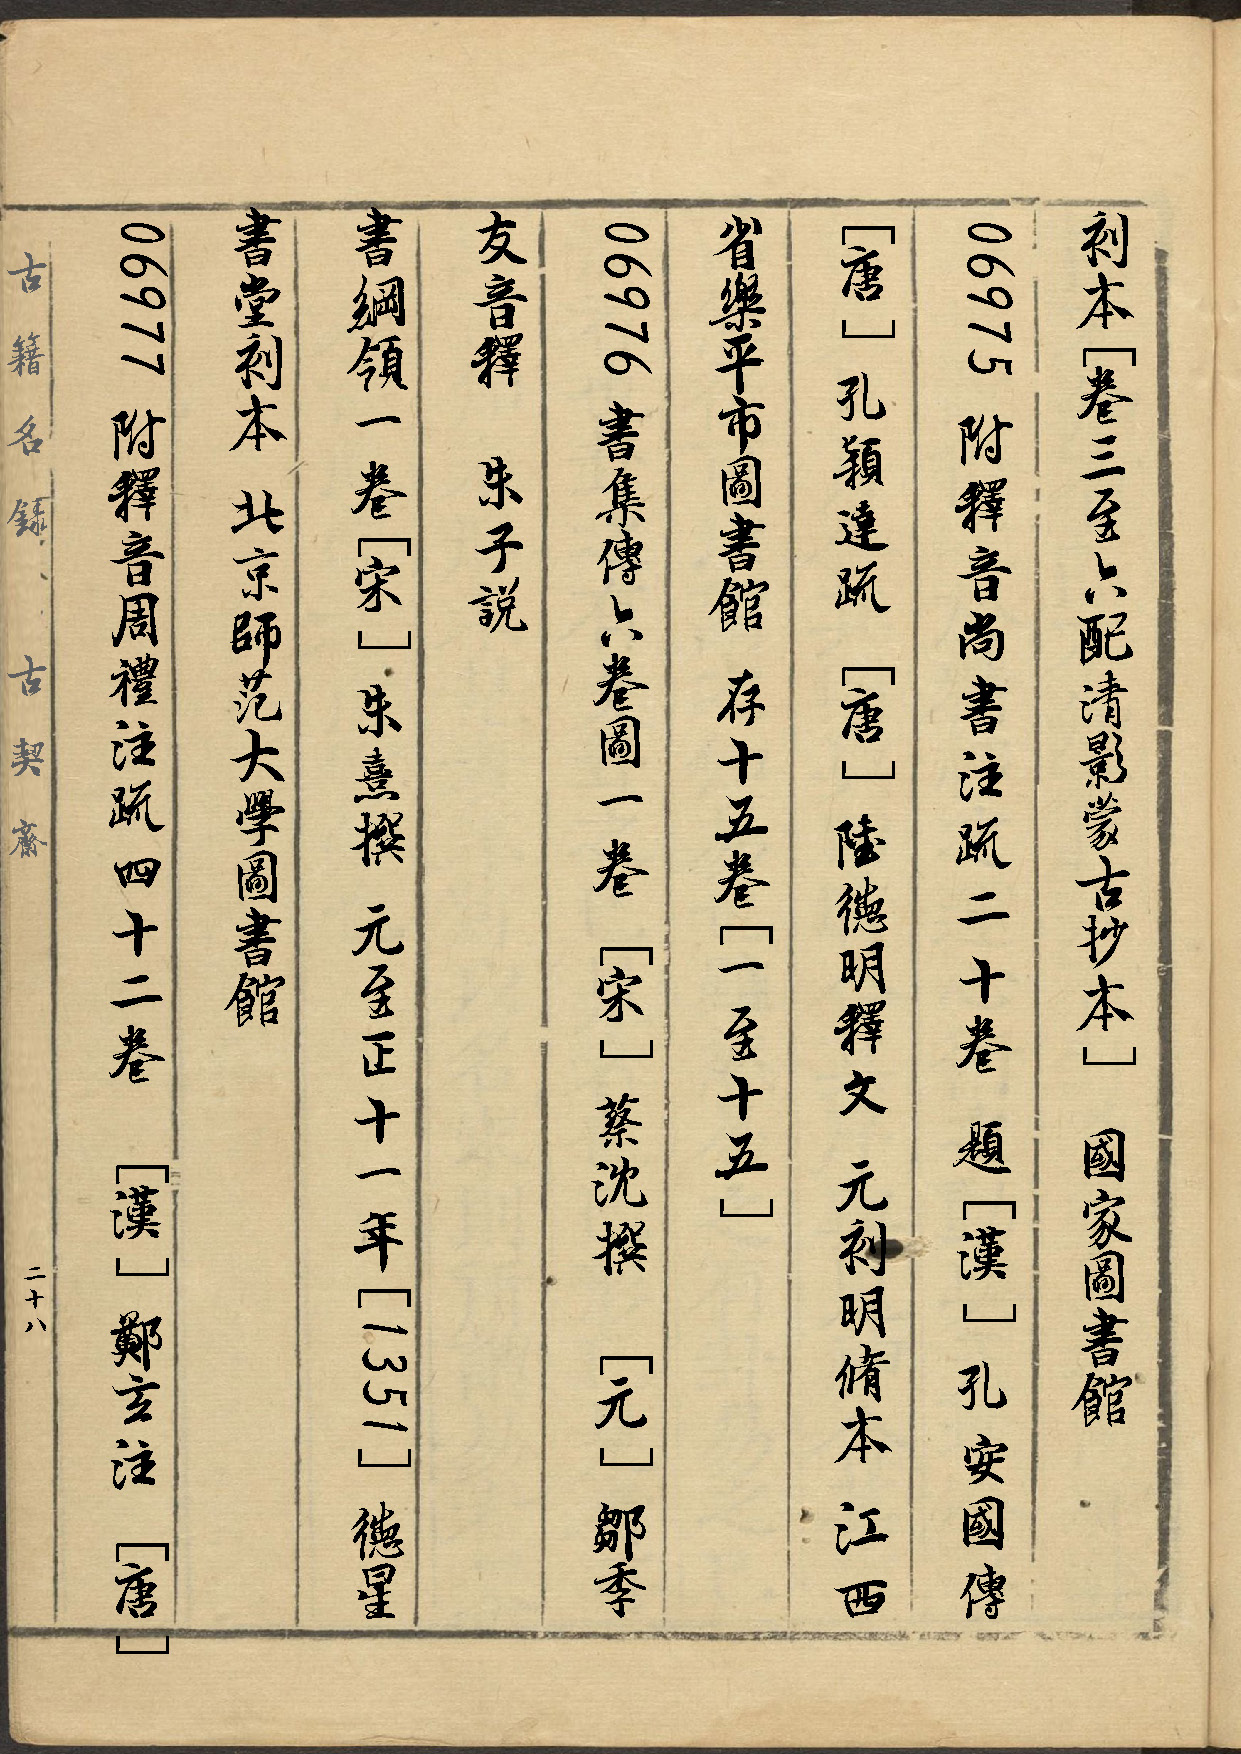 刻本［卷三至六配清影蒙古抄本］ 國家圖書館
06975 附釋音尚書注疏二十卷 題［漢］孔安國傳
［唐］孔穎達疏 ［唐］陸德明釋文 元刻明脩本 江西
省樂平市圖書館 存十五卷［一至十五］
06976 書集傳六卷圖一卷 ［宋］蔡沈撰 ［元］鄒季
友音釋 朱子説
書綱領一卷［宋］朱熹撰 元至正十一年［1351］德星
書堂刻本 北京師范大學圖書館
06977 附釋音周禮注疏四十二卷 ［漢］鄭玄注 ［唐］
古籍名録、古契齋
二十八